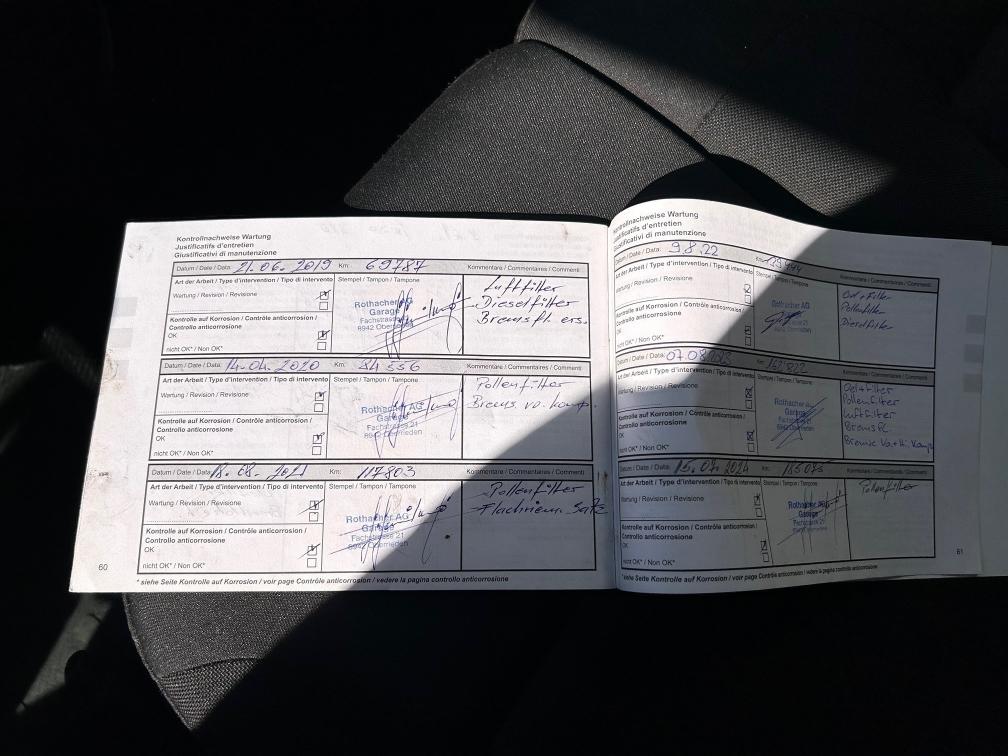 Kontrollnachweise Wartung
Justificatifs d'entretien
Giustificativi di manutenzione
Datum / Date / Data: 21.06.2019 Km: 69787 Kommentare / Commentaires / Commenti
Art der Arbeit / Type d'intervention / Tipo di intervento Stempel / Tampon / Tampone
Wartung / Revision / Revisione
Kontrolle auf Korrosion / Contrôle anticorrosion /
Controllo anticorrosione
OK
nicht OK* / Non OK*
Rothacher AG
Garage
Fachstrasse 21
8942 Oberrieden
Luftfilter
Dieselfilter
Bremsfl. ers.
Datum / Date / Data: 14.04.2020 Km: 94556 Kommentare / Commentaires / Commenti
Art der Arbeit / Type d'intervention / Tipo di intervento Stempel / Tampon / Tampone
Wartung / Revision / Revisione
Kontrolle auf Korrosion / Contrôle anticorrosion /
Controllo anticorrosione
OK
nicht OK* / Non OK*
Rothacher AG
Garage
Fachstrasse 21
8942 Oberrieden
Pollenfilter
Brems. vo. komp.
Datum / Date / Data: 08.2021 Km: 117803 Kommentare / Commentaires / Commenti
Art der Arbeit / Type d'intervention / Tipo di intervento Stempel / Tampon / Tampone
Wartung / Revision / Revisione
Kontrolle auf Korrosion / Contrôle anticorrosion /
Controllo anticorrosione
OK
nicht OK* / Non OK*
Rothacher AG
Garage
Fachstrasse 21
8942 Oberrieden
Pollenfilter
Flachriem. Satz
60
* siehe Seite Kontrolle auf Korrosion / voir page Contrôle anticorrosion / vedere la pagina controllo anticorrosione
Kontrollnachweise Wartung
Justificatifs d'entretien
Giustificativi di manutenzione
Datum / Date / Data: 9.8.22 Km: Kommentare / Commentaires / Commenti
Art der Arbeit / Type d'intervention / Tipo di intervento Stempel / Tampon / Tampone
Wartung / Revision / Revisione
Kontrolle auf Korrosion / Contrôle anticorrosion /
Controllo anticorrosione
OK
nicht OK* / Non OK*
Rothacher AG
Pollenfilter
Dieselfilter
Datum / Date / Data: Km: Kommentare / Commentaires / Commenti
Art der Arbeit / Type d'intervention / Tipo di intervento Stempel / Tampon / Tampone
Wartung / Revision / Revisione
Kontrolle auf Korrosion / Contrôle anticorrosion /
Controllo anticorrosione
OK
nicht OK* / Non OK*
Rothacher AG
Garage
Fachstrasse 21
8942 Oberrieden
Oel+filter
Pollenfilter
Luftfilter
Bremsfl.
Datum / Date / Data: 15.07.2024 Km: Kommentare / Commentaires / Commenti
Art der Arbeit / Type d'intervention / Tipo di intervento Stempel / Tampon / Tampone
Wartung / Revision / Revisione
Kontrolle auf Korrosion / Contrôle anticorrosion /
Controllo anticorrosione
OK
nicht OK* / Non OK*
Rothacher AG
Garage
Fachstrasse 21
8942 Oberrieden
Pollenfilter
61
* siehe Seite Kontrolle auf Korrosion / voir page Contrôle anticorrosion / vedere la pagina controllo anticorrosione